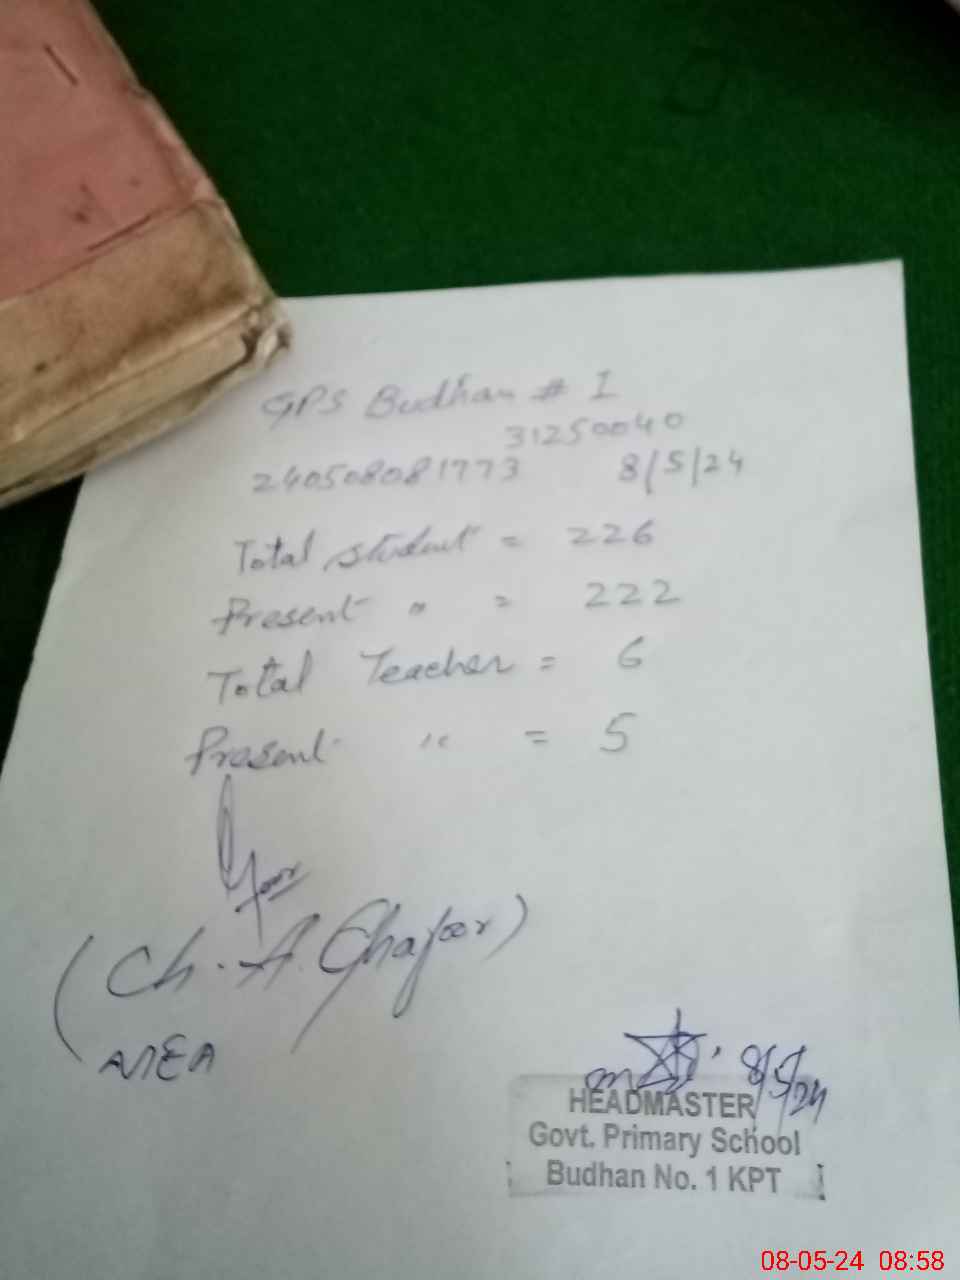 GPS Budhan # 1
31250040
240508081773 8/5/24
Total student = 226
Present " = 222
Total Teacher = 6
Present " = 5
(Ch. A. Ghafoor)
AIEA
8/5/24
HEADMASTER
Govt. Primary School
Budhan No. 1 KPT
08-05-24 08:58